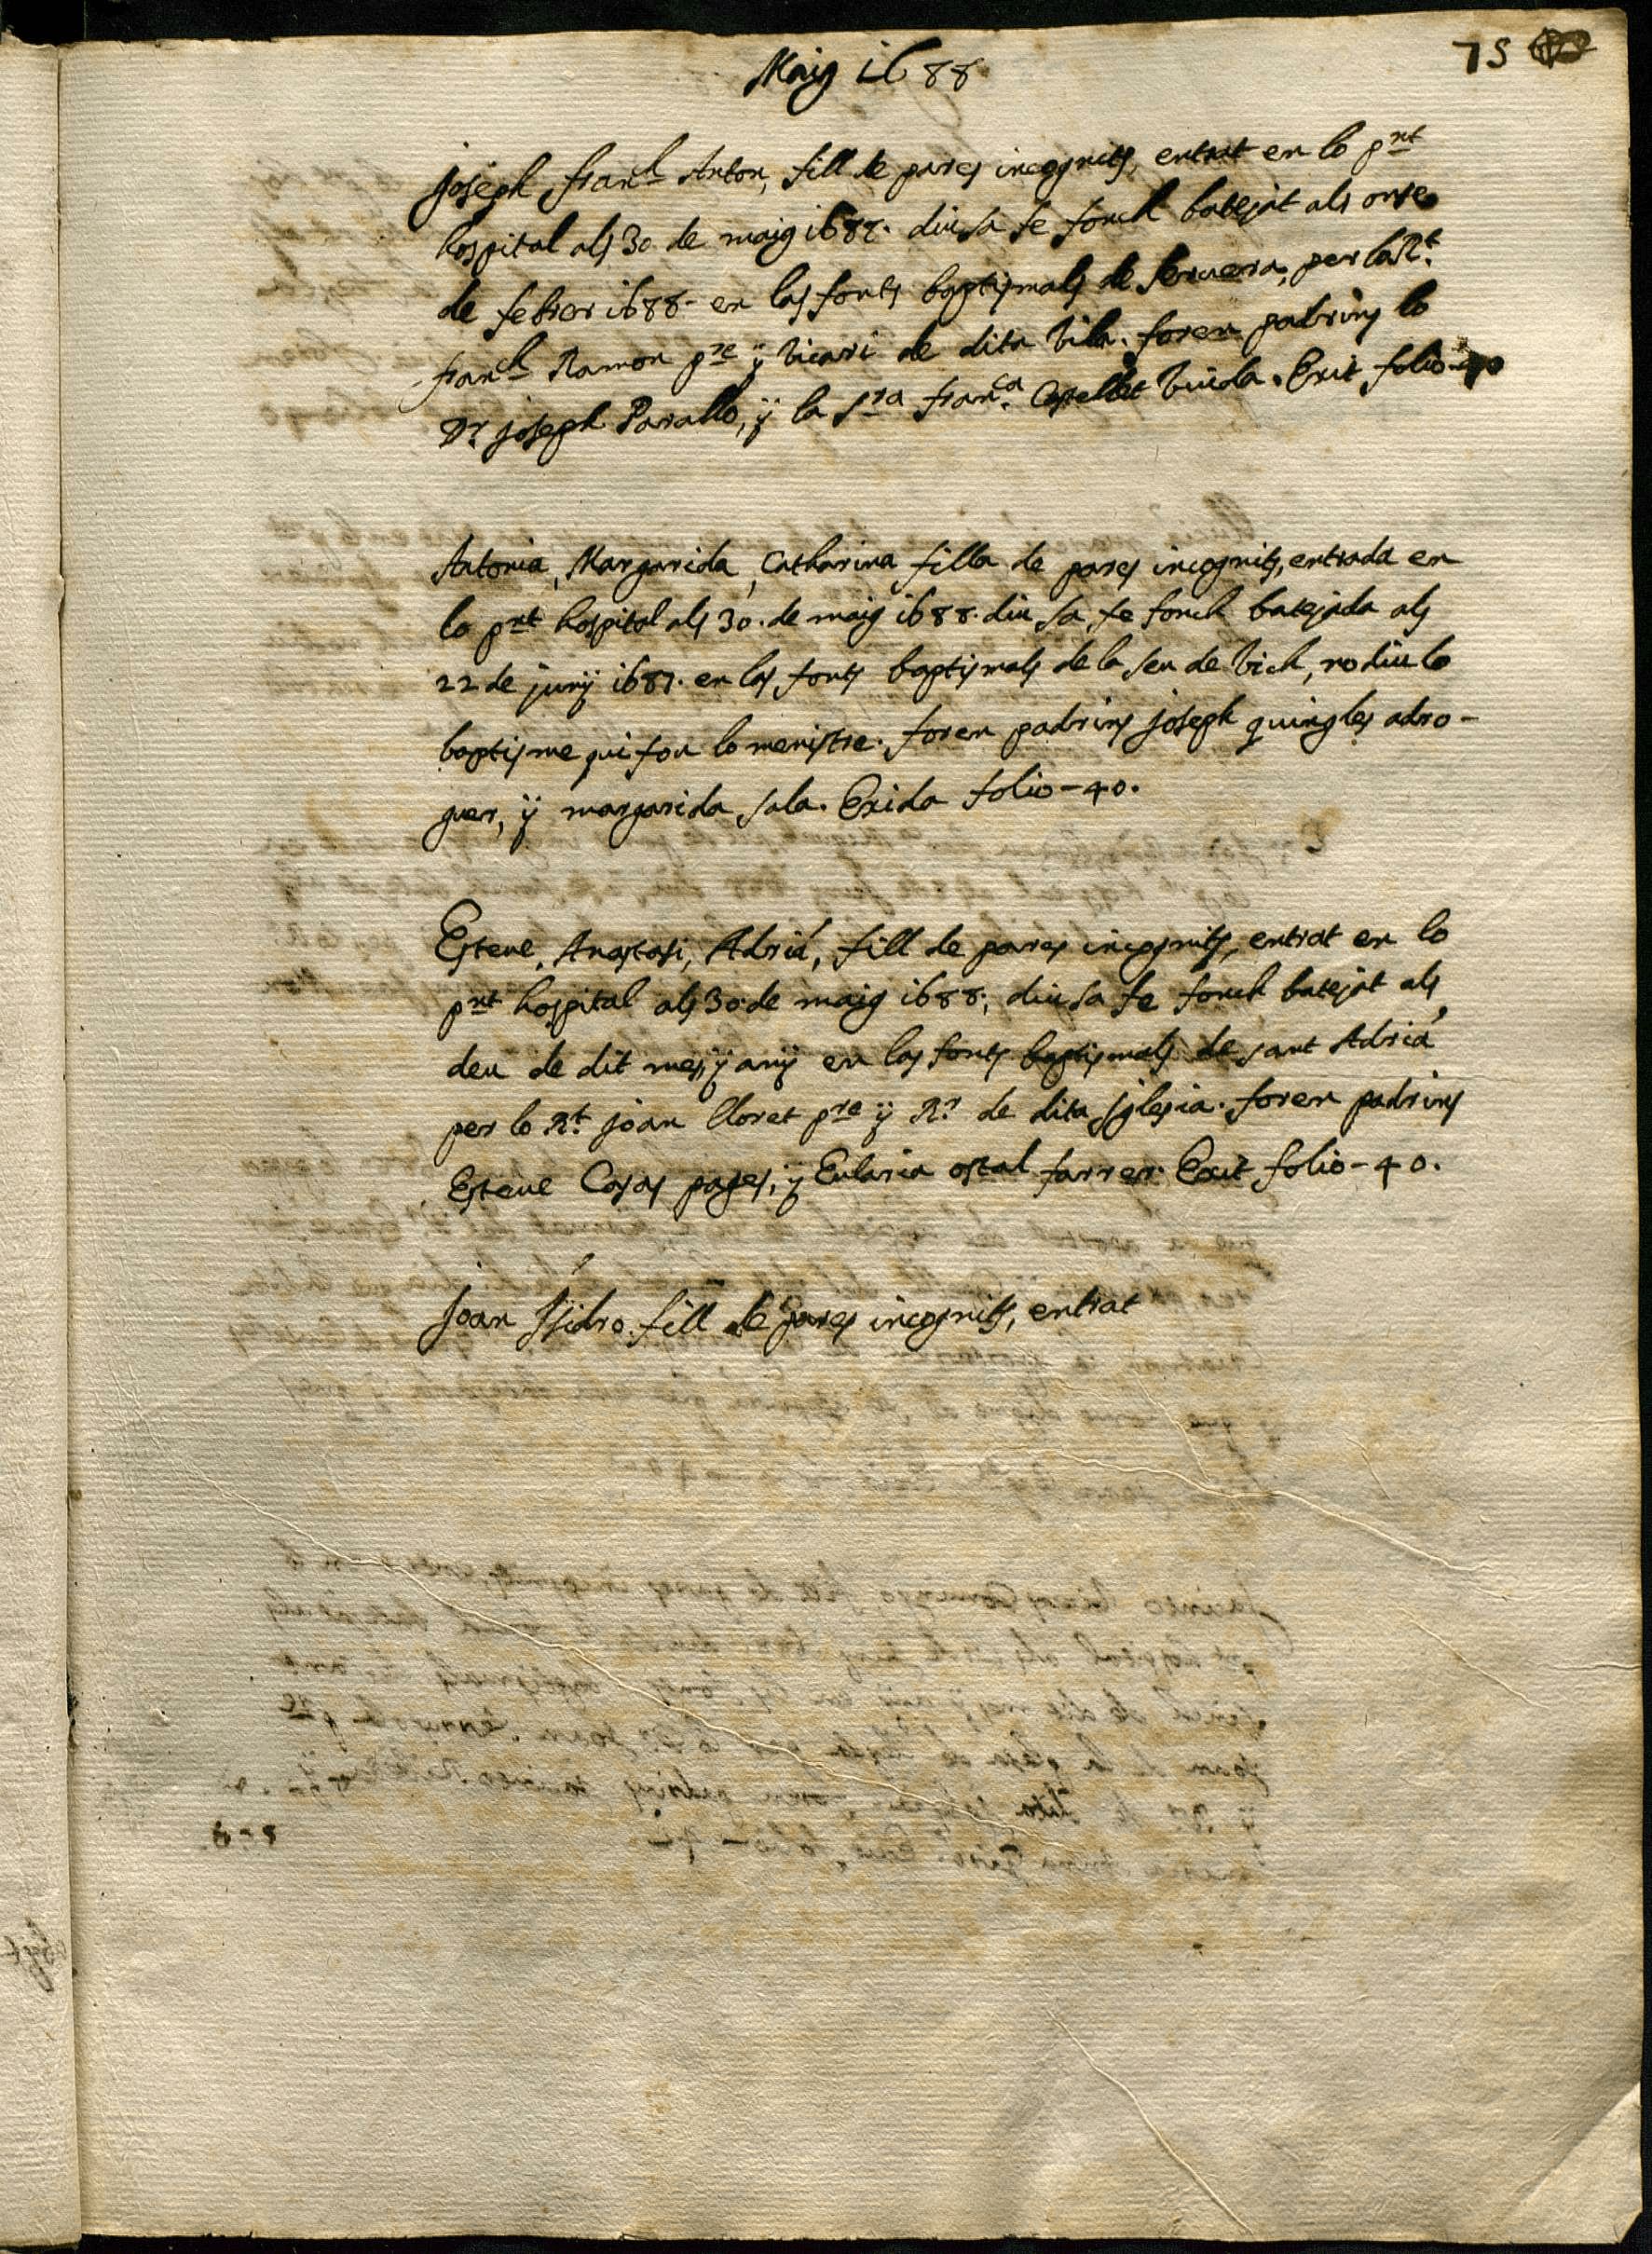 Maig 1688
75
Joseph Fran.ch Anton, fill de pares incognits, entrat en lo pnt
hospital als 30 de maig 1688. diu sa fe fonch batejat als onse
de febrer 1688. en las fonts baptismals de Servera, per lo Rt.
Fran.ch Ramon pre ÿ vicari de dita vila. foren padrins lo
Dr. Joseph Parallo, ÿ la sra Fran.ca Castellet viuda. Exit folio-40
Antonia, Margarida, Catharina filla de pares incognits, entrada en
lo pnt hospital als 30. de maig 1688. diu sa fe fonch batejada als
22 de junÿ 1687. en las fonts baptismals de la seu de Vich, no diu lo
baptisme qui fou lo menistre. foren padrins Joseph quingles adro-
guer, ÿ margarida sala. Exida folio-40.
Esteve, Anastasi, Adriá, fill de pares incognits, entrat en lo
pnt hospital als 30 de maig 1688; diu sa fe fonch batejat als
deu de dit mes, ÿ anÿ en las fonts baptismals de sant Adriá
per lo Rt. Joan lloret pre ÿ Rr. de dita Iglesia. foren padrins
Esteve Casas pages, ÿ Eularia ostal farrer. Exit folio-40.
Joan Isidro fill de Pares incognits, entrat